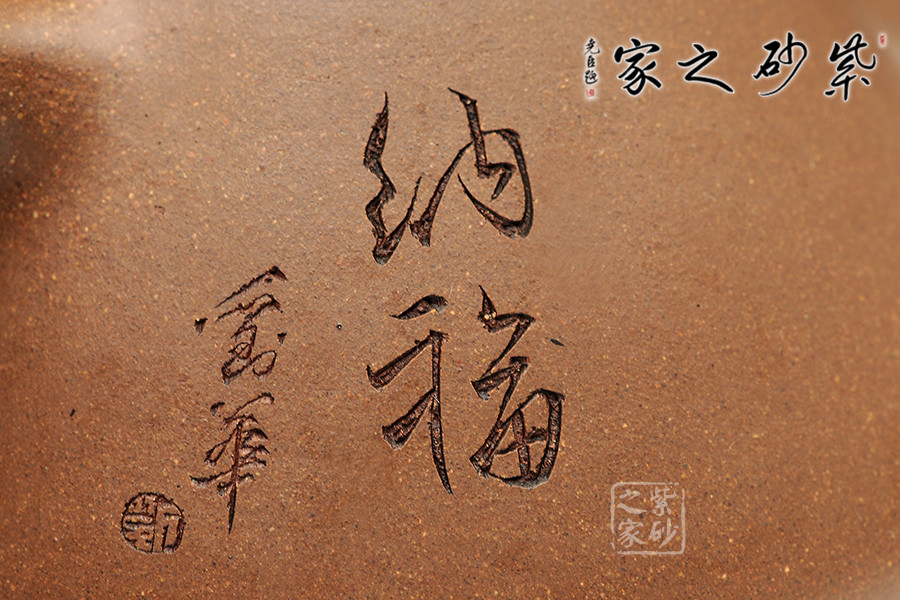 紫砂之家
尧臣题
纳福
华
紫砂之家